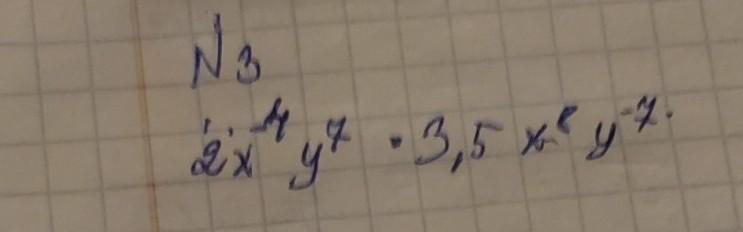 N3
2x⁻⁴y⁷ · 3,5x⁸y⁻⁷.